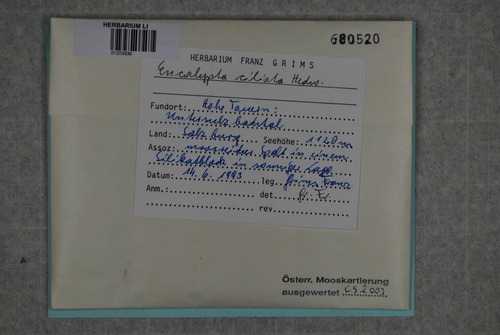 HERBARIUM LI
680520
HERBARIUM FRANZ GRIMS
Encalypta ciliata Hedw.
Fundort: Hohe Tauern:
Untersulzbachtal
Land: Salzburg Seehöhe: 1120 m
Assoz: Spalt in einem
Silikatblock in sonniger Lage
Datum: 14. 6. 1993 leg. Grims Franz
Anm. det. Gr. Fr.
rev.
Österr. Mooskartierung
ausgewertet